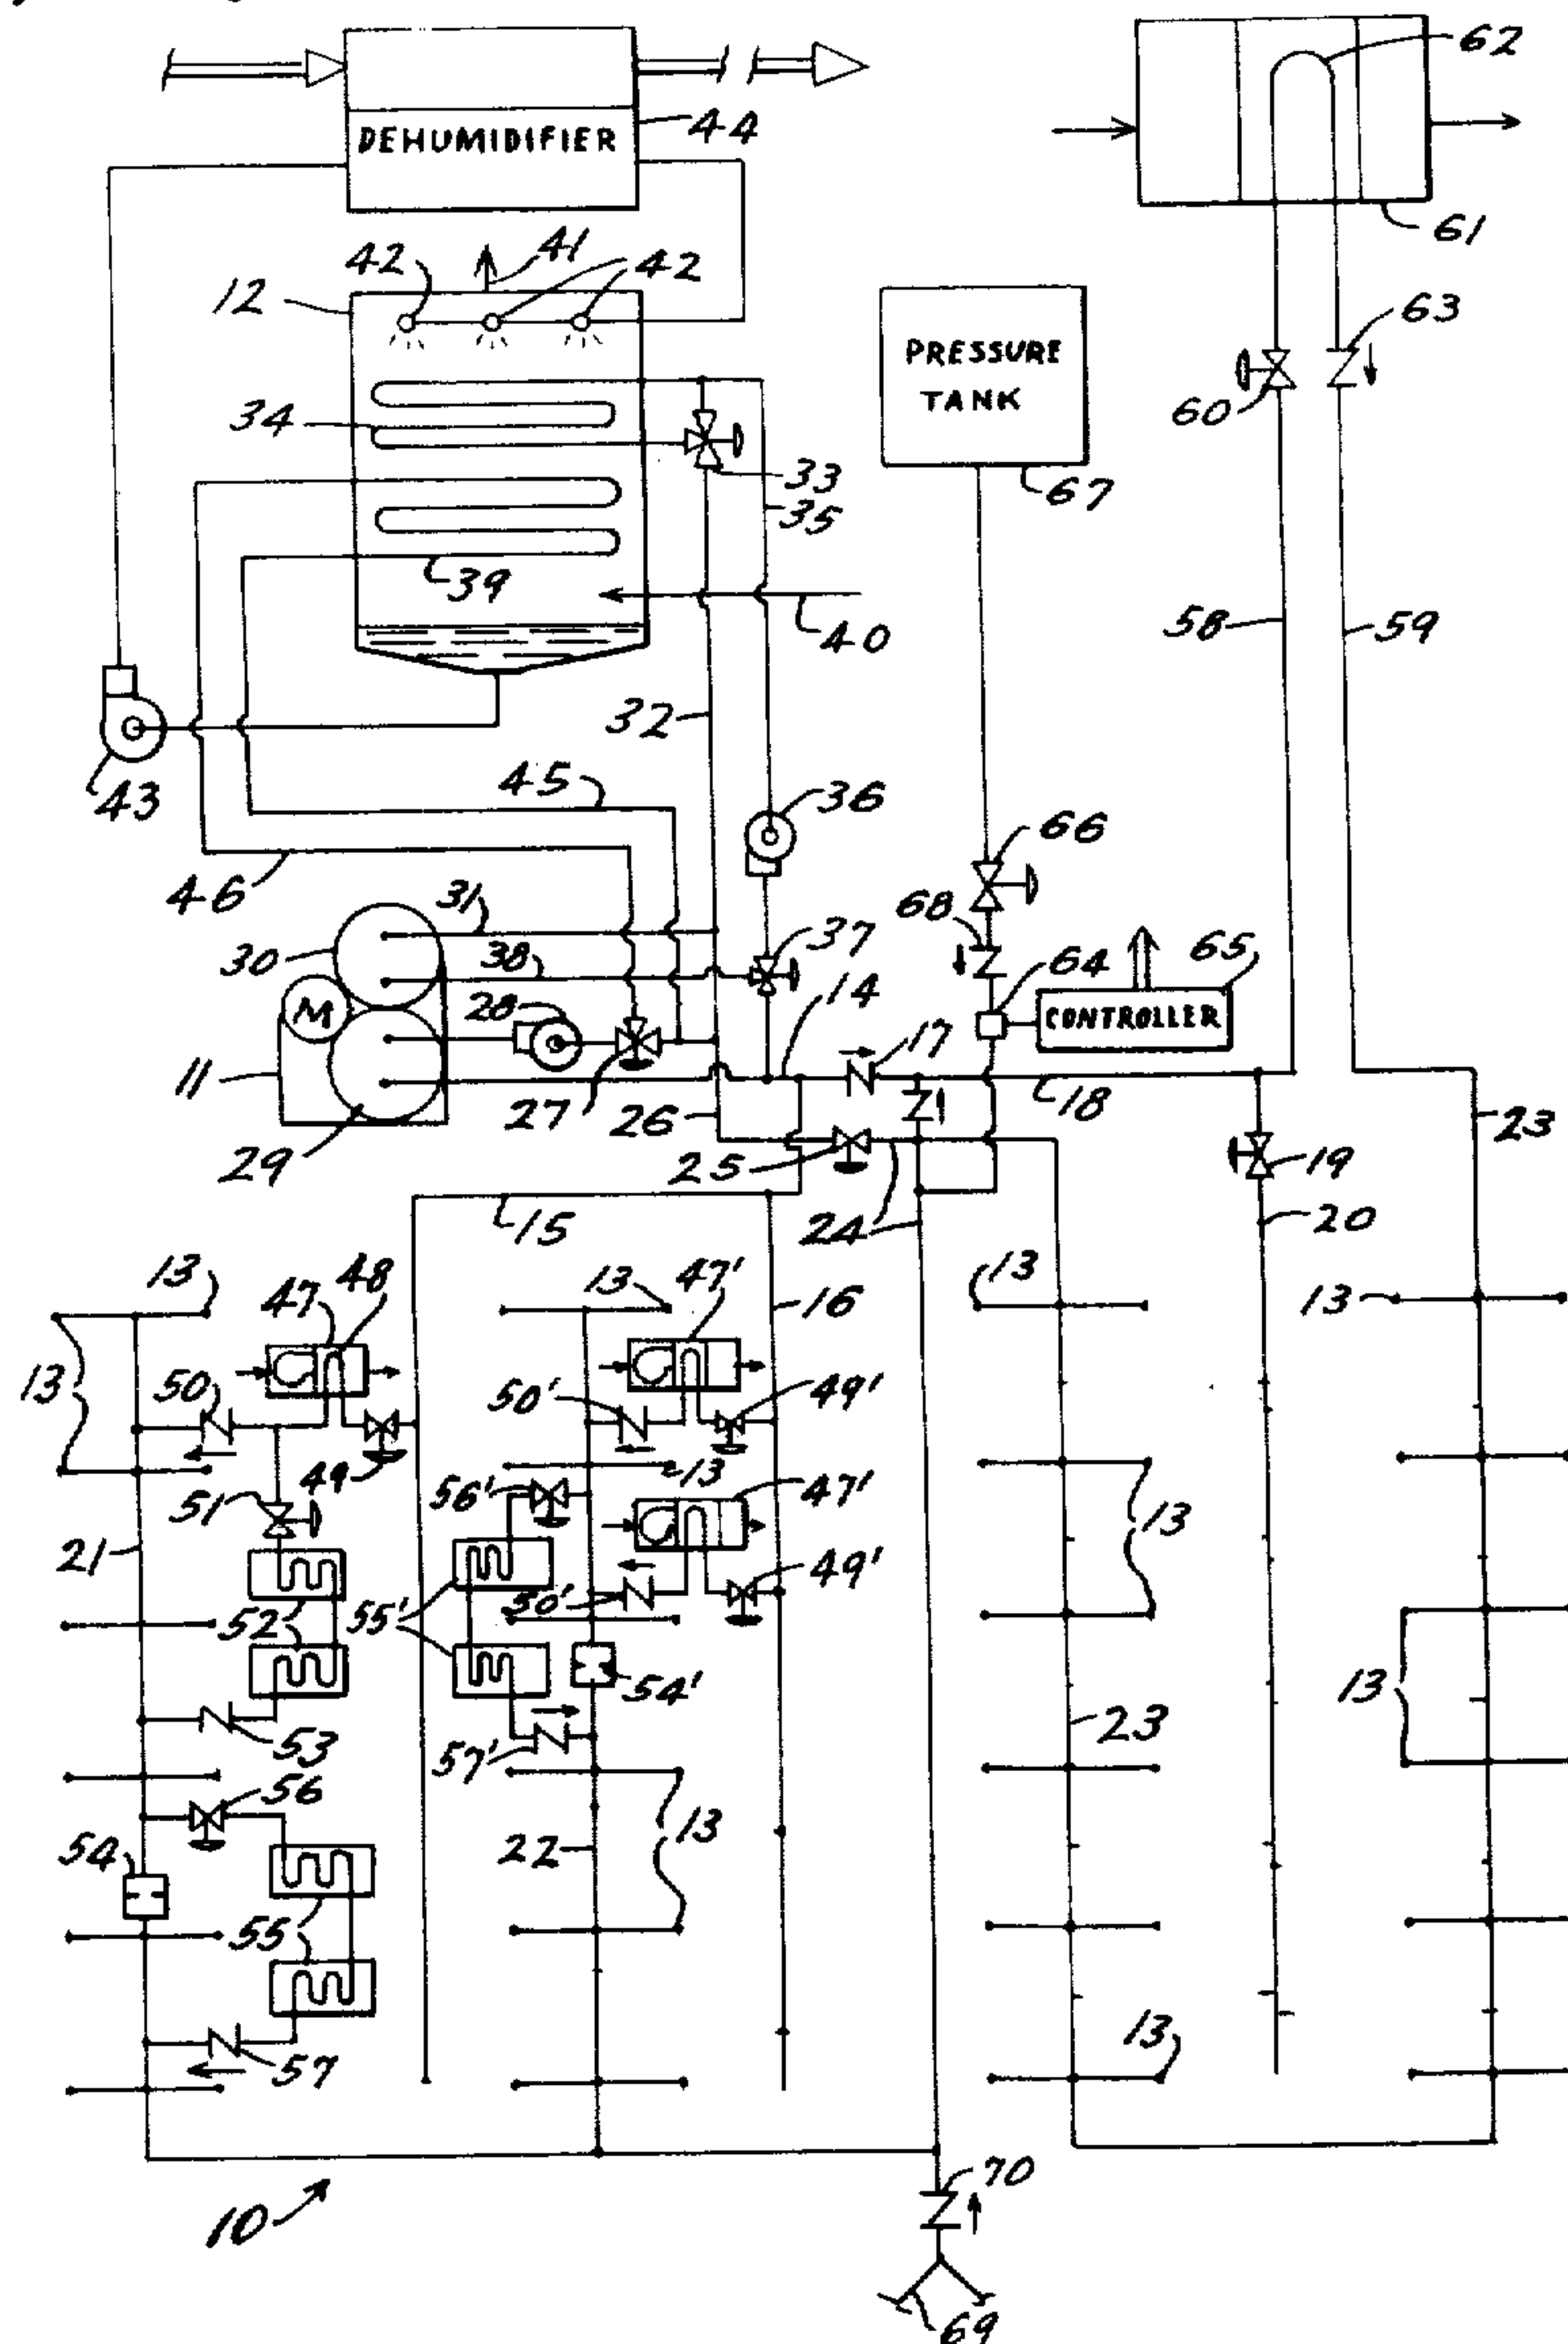 62
DEHUMIDIFIER
44
61
42
41
42
12
63
PRESSURE
TANK
60
34
33
67
35
39
40
58
59
32
43
45
36
66
46
31
68
37
30
38
64
65
M
28
14
CONTROLLER
17
11
27
26
18
23
29
25
19
15
24
20
13
47
48
13
47'
16
13
13
13
50
50'
49'
49
13
51
56'
47'
13
21
52
55'
50'
49'
54'
13
53
57'
23
56
54
22
13
55
13
57
70
10
69